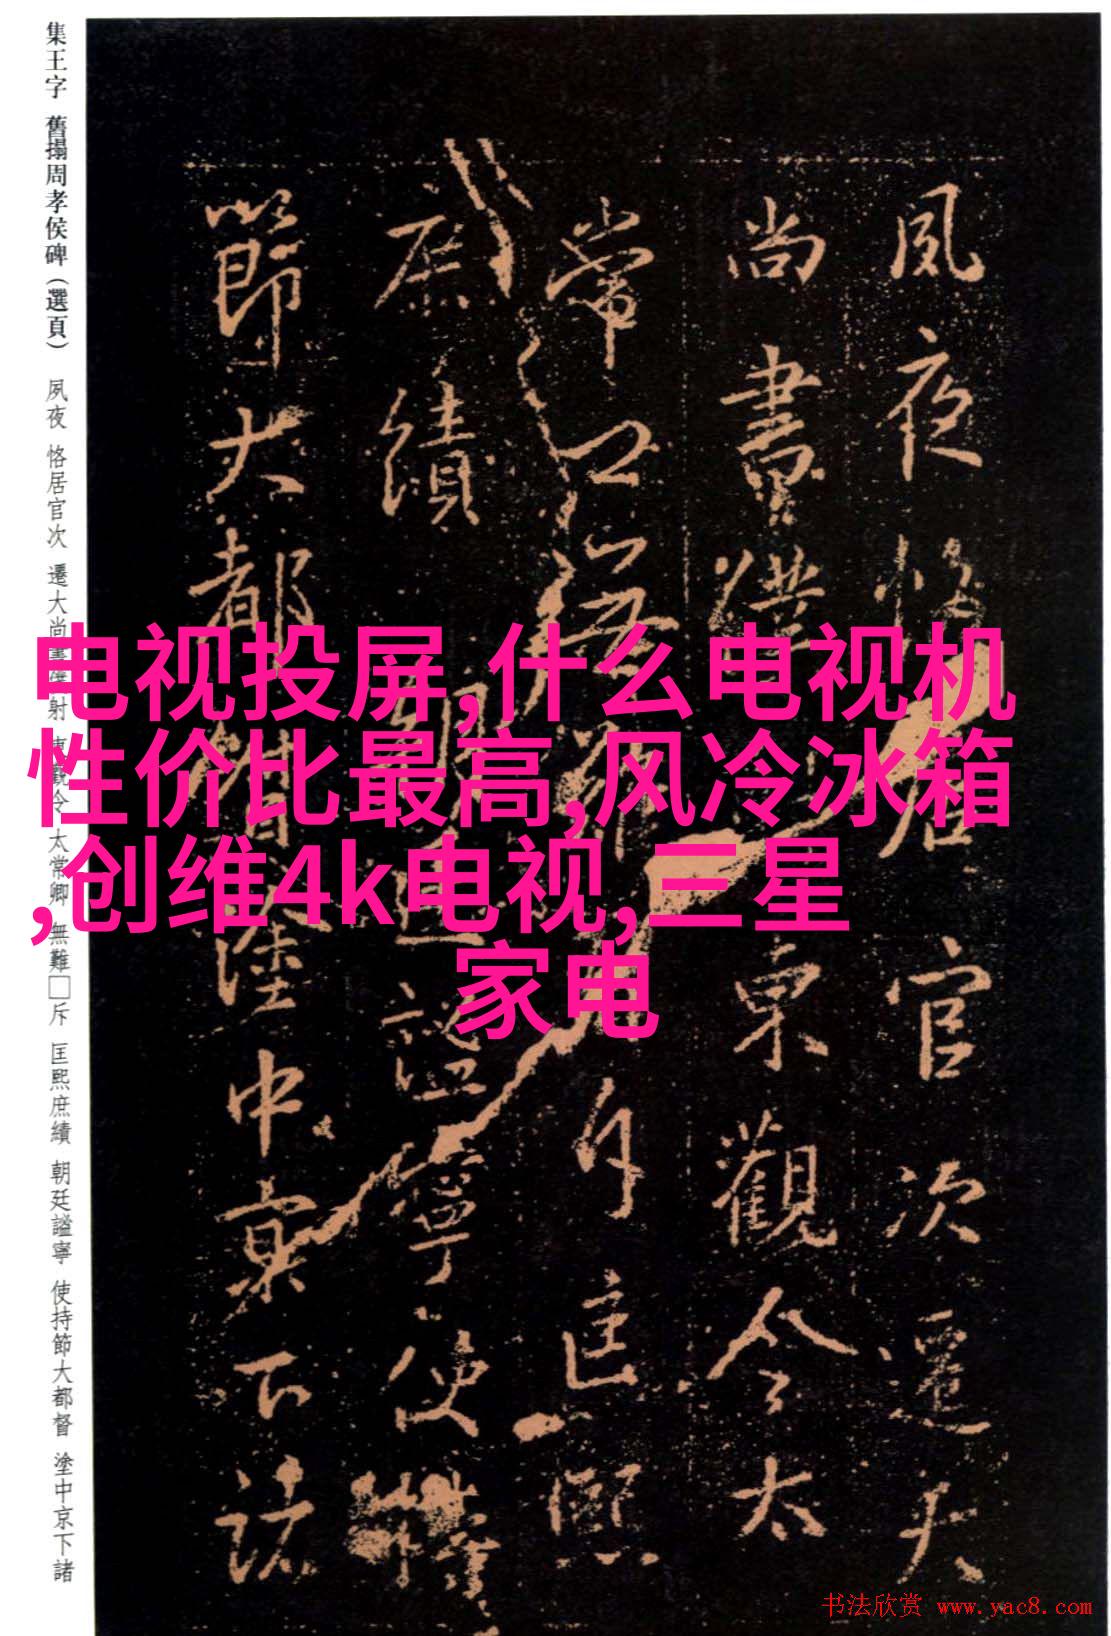 集王字 舊搨周孝侯碑（選頁） 夙夜 恪居官次 遷大尚書僕射 東觀令 太常卿 無難□斥 匡熙庶績 朝廷謐寧 使持節大都督 塗中京下諸
夙夜恪居官次遷大
尚書僕 東觀令太
常 無 斥匡熙
庶績 謐寧使
節大都 塗中京下諸
电视投屏,什么电视机
性价比最高,风冷冰箱
,创维4k电视,三星
家电
书法欣赏 www.yac8.com